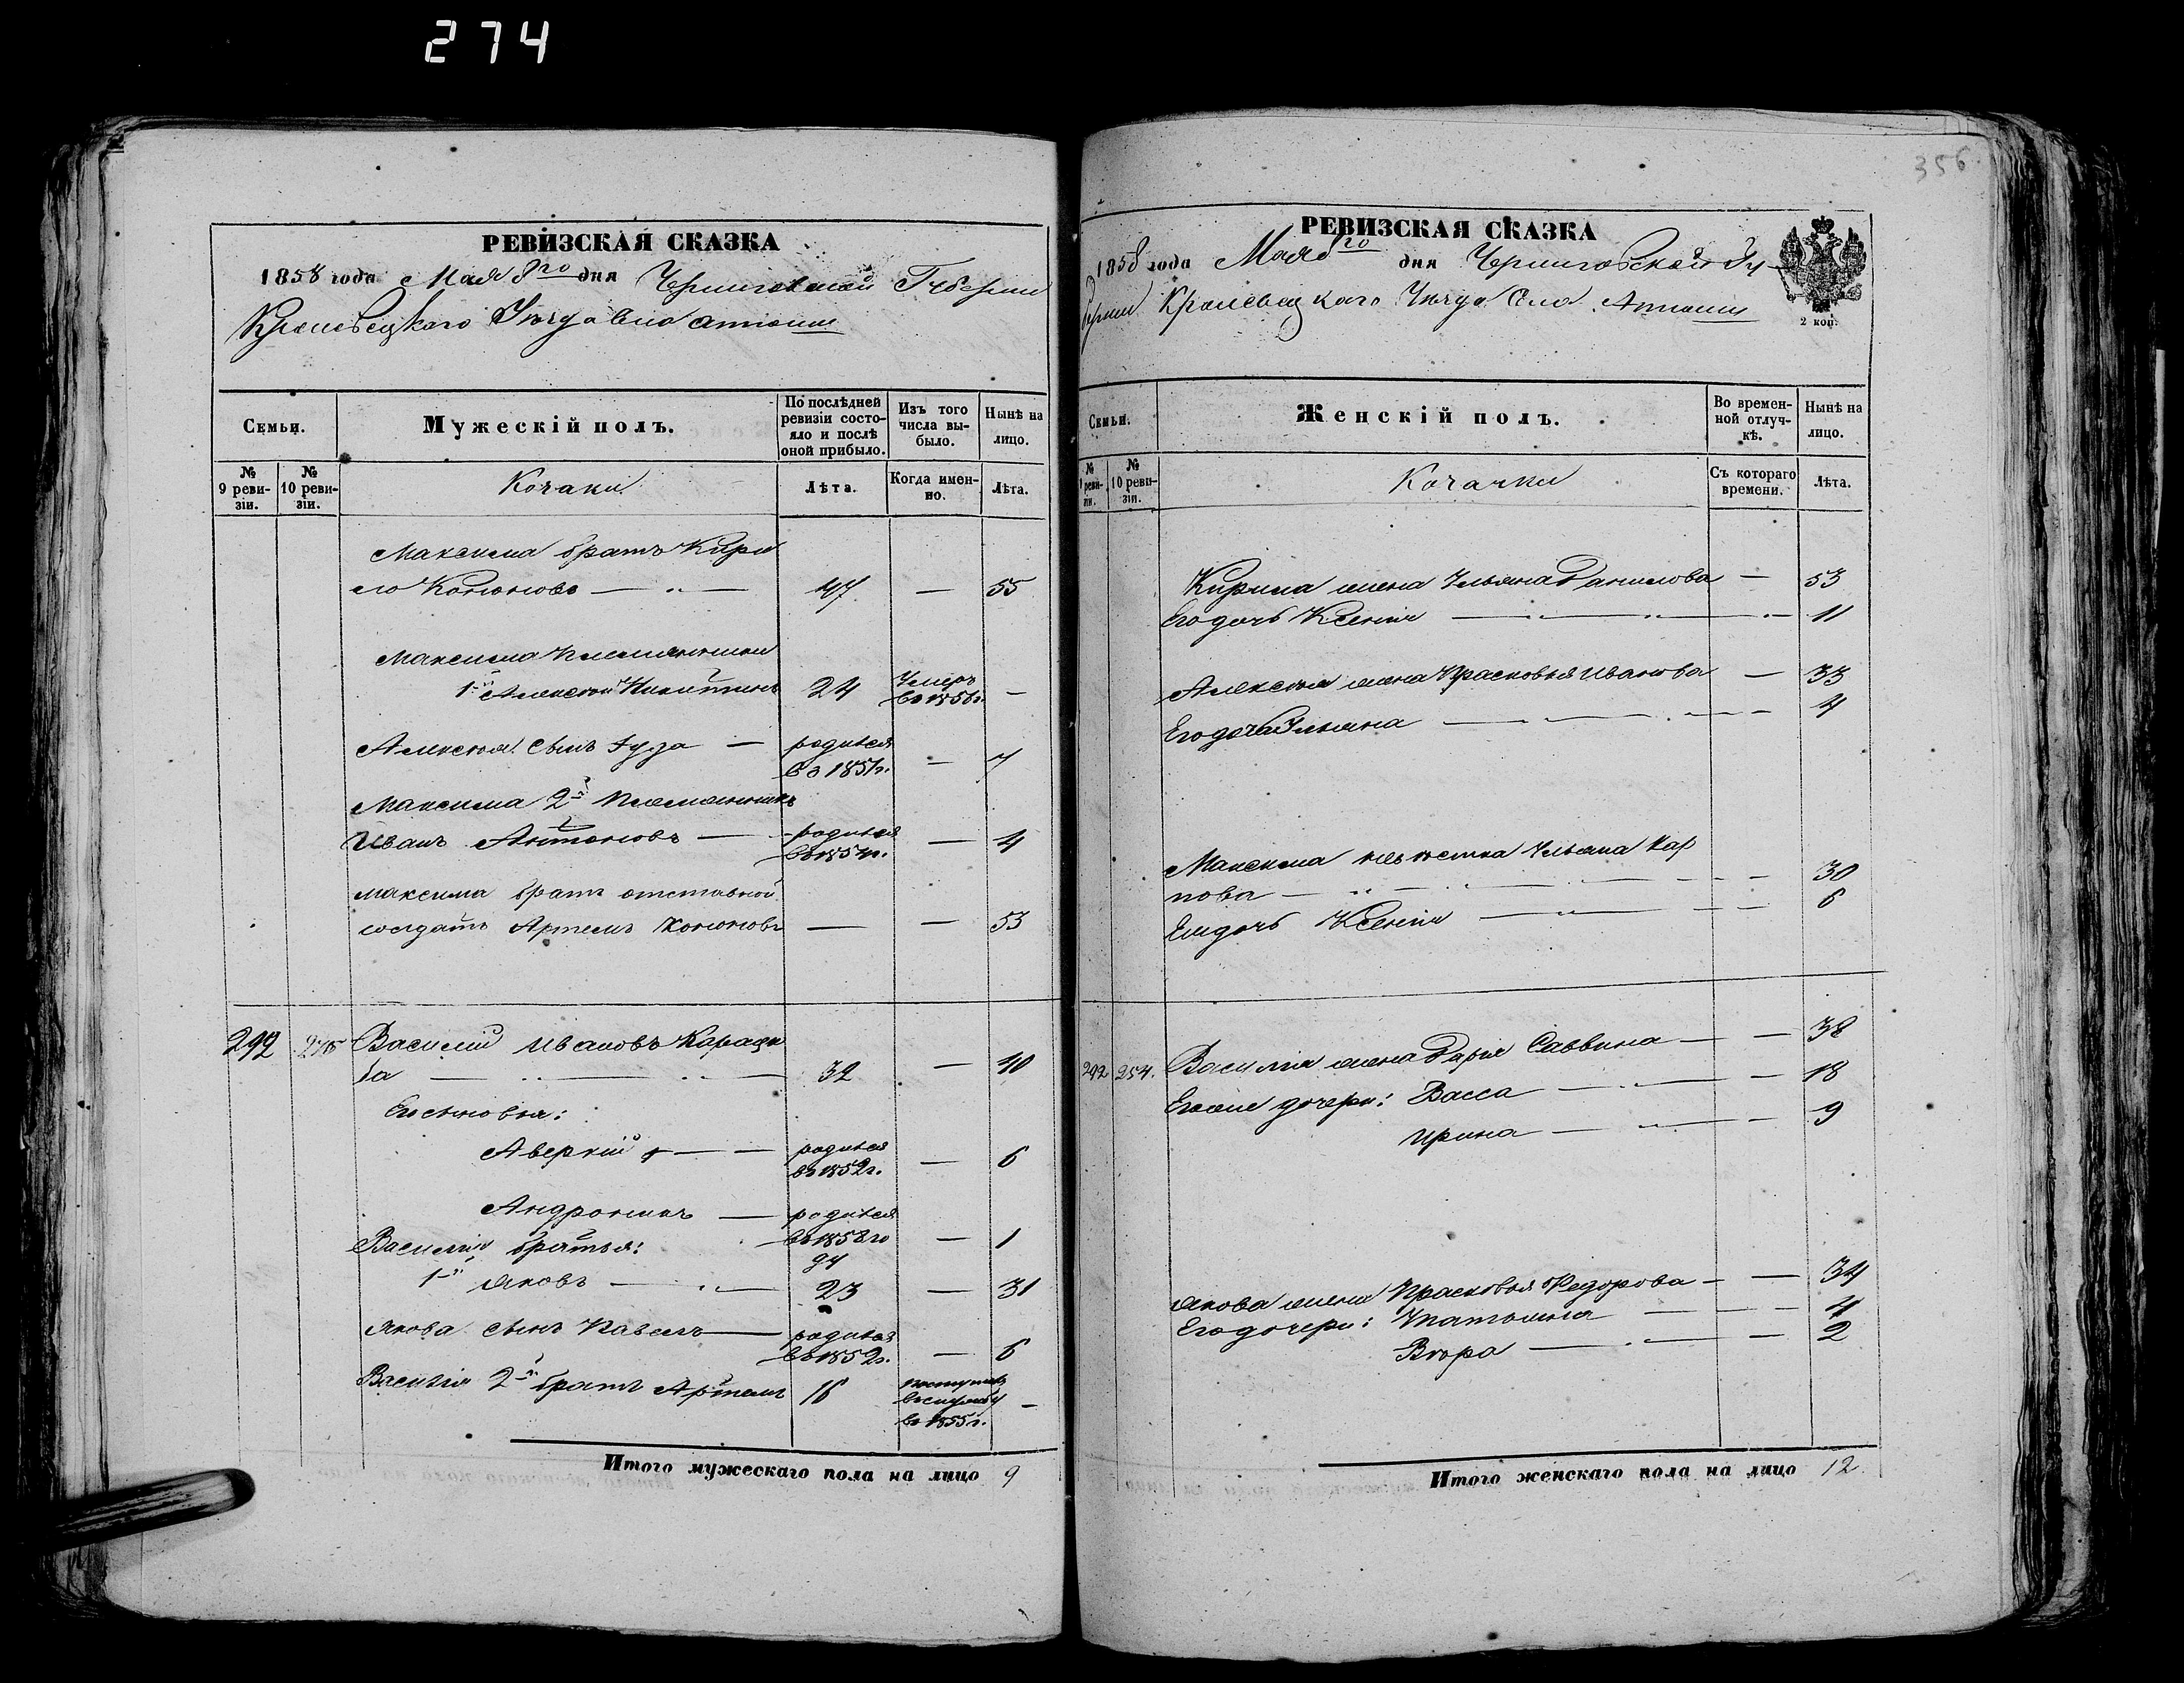 274
РЕВИЗСКАЯ СКАЗКА
1858 года Мая 8го дня Черниговской Губернии
Кролевецкаго Уѣзда Села
Семьи.
Мужескій полъ.
По послѣдней ревизіи состояло и послѣ оной прибыло.
Изъ того числа выбыло.
Нынѣ на лицо.
№ 9 ревизіи.
№ 10 ревизіи.
Козаки
Лѣта.
Когда именно.
Лѣта.
Максима братъ Кири
ло Кононовъ — 47 — 55
Максима племянники
1й Алексѣй Никитинъ 24 Умеръ въ 185 г. —
Алексѣя сынъ — родился въ 1851г. — 7
Максима 2й племянникъ
Иванъ Антоновъ — родился въ 1854г. — 4
Максима братъ отставной
солдатъ Артемъ Кононовъ — — 53
292 Василій Ивановъ
ба — 32 — 40
Его сыновья:
Аверкій — родился въ 1852г. — 6
Андроникъ — родился въ 1858го — 1
Василія братья:
1й Яковъ — 23 — 31
Якова сынъ Павелъ — родился въ 1852г. — 6
Василія 2й братъ Артемъ 16 въ 1855г. —
Итого мужескаго пола на лицо 9
356
РЕВИЗСКАЯ СКАЗКА
1858 года Мая 8го дня Черниговской Гу
берніи Кролевецкаго Уѣзда Села
2 коп.
Семьи.
Женскій полъ.
Во временной отлучкѣ.
Нынѣ на лицо.
№ 9 ревизіи.
№ 10 ревизіи.
Козачки
Съ котораго времени.
Лѣта.
Кирила жена Ульяна Данилова — 53
Его дочь Ксенія — 11
Алексѣя жена Прасковья Иванова — 33
Его дочь Ульяна — 4
Максима невѣстка Ульяна Кар
пова — 30
Ея дочь Ксенія — 6
292 254. Василія жена Дарья Саввина — 38
Его же дочери: Васса — 18
Ирина — 9
Якова жена Прасковья Федорова — 34
Его дочери: — 4
Вѣра — 2
Итого женскаго пола на лицо 12